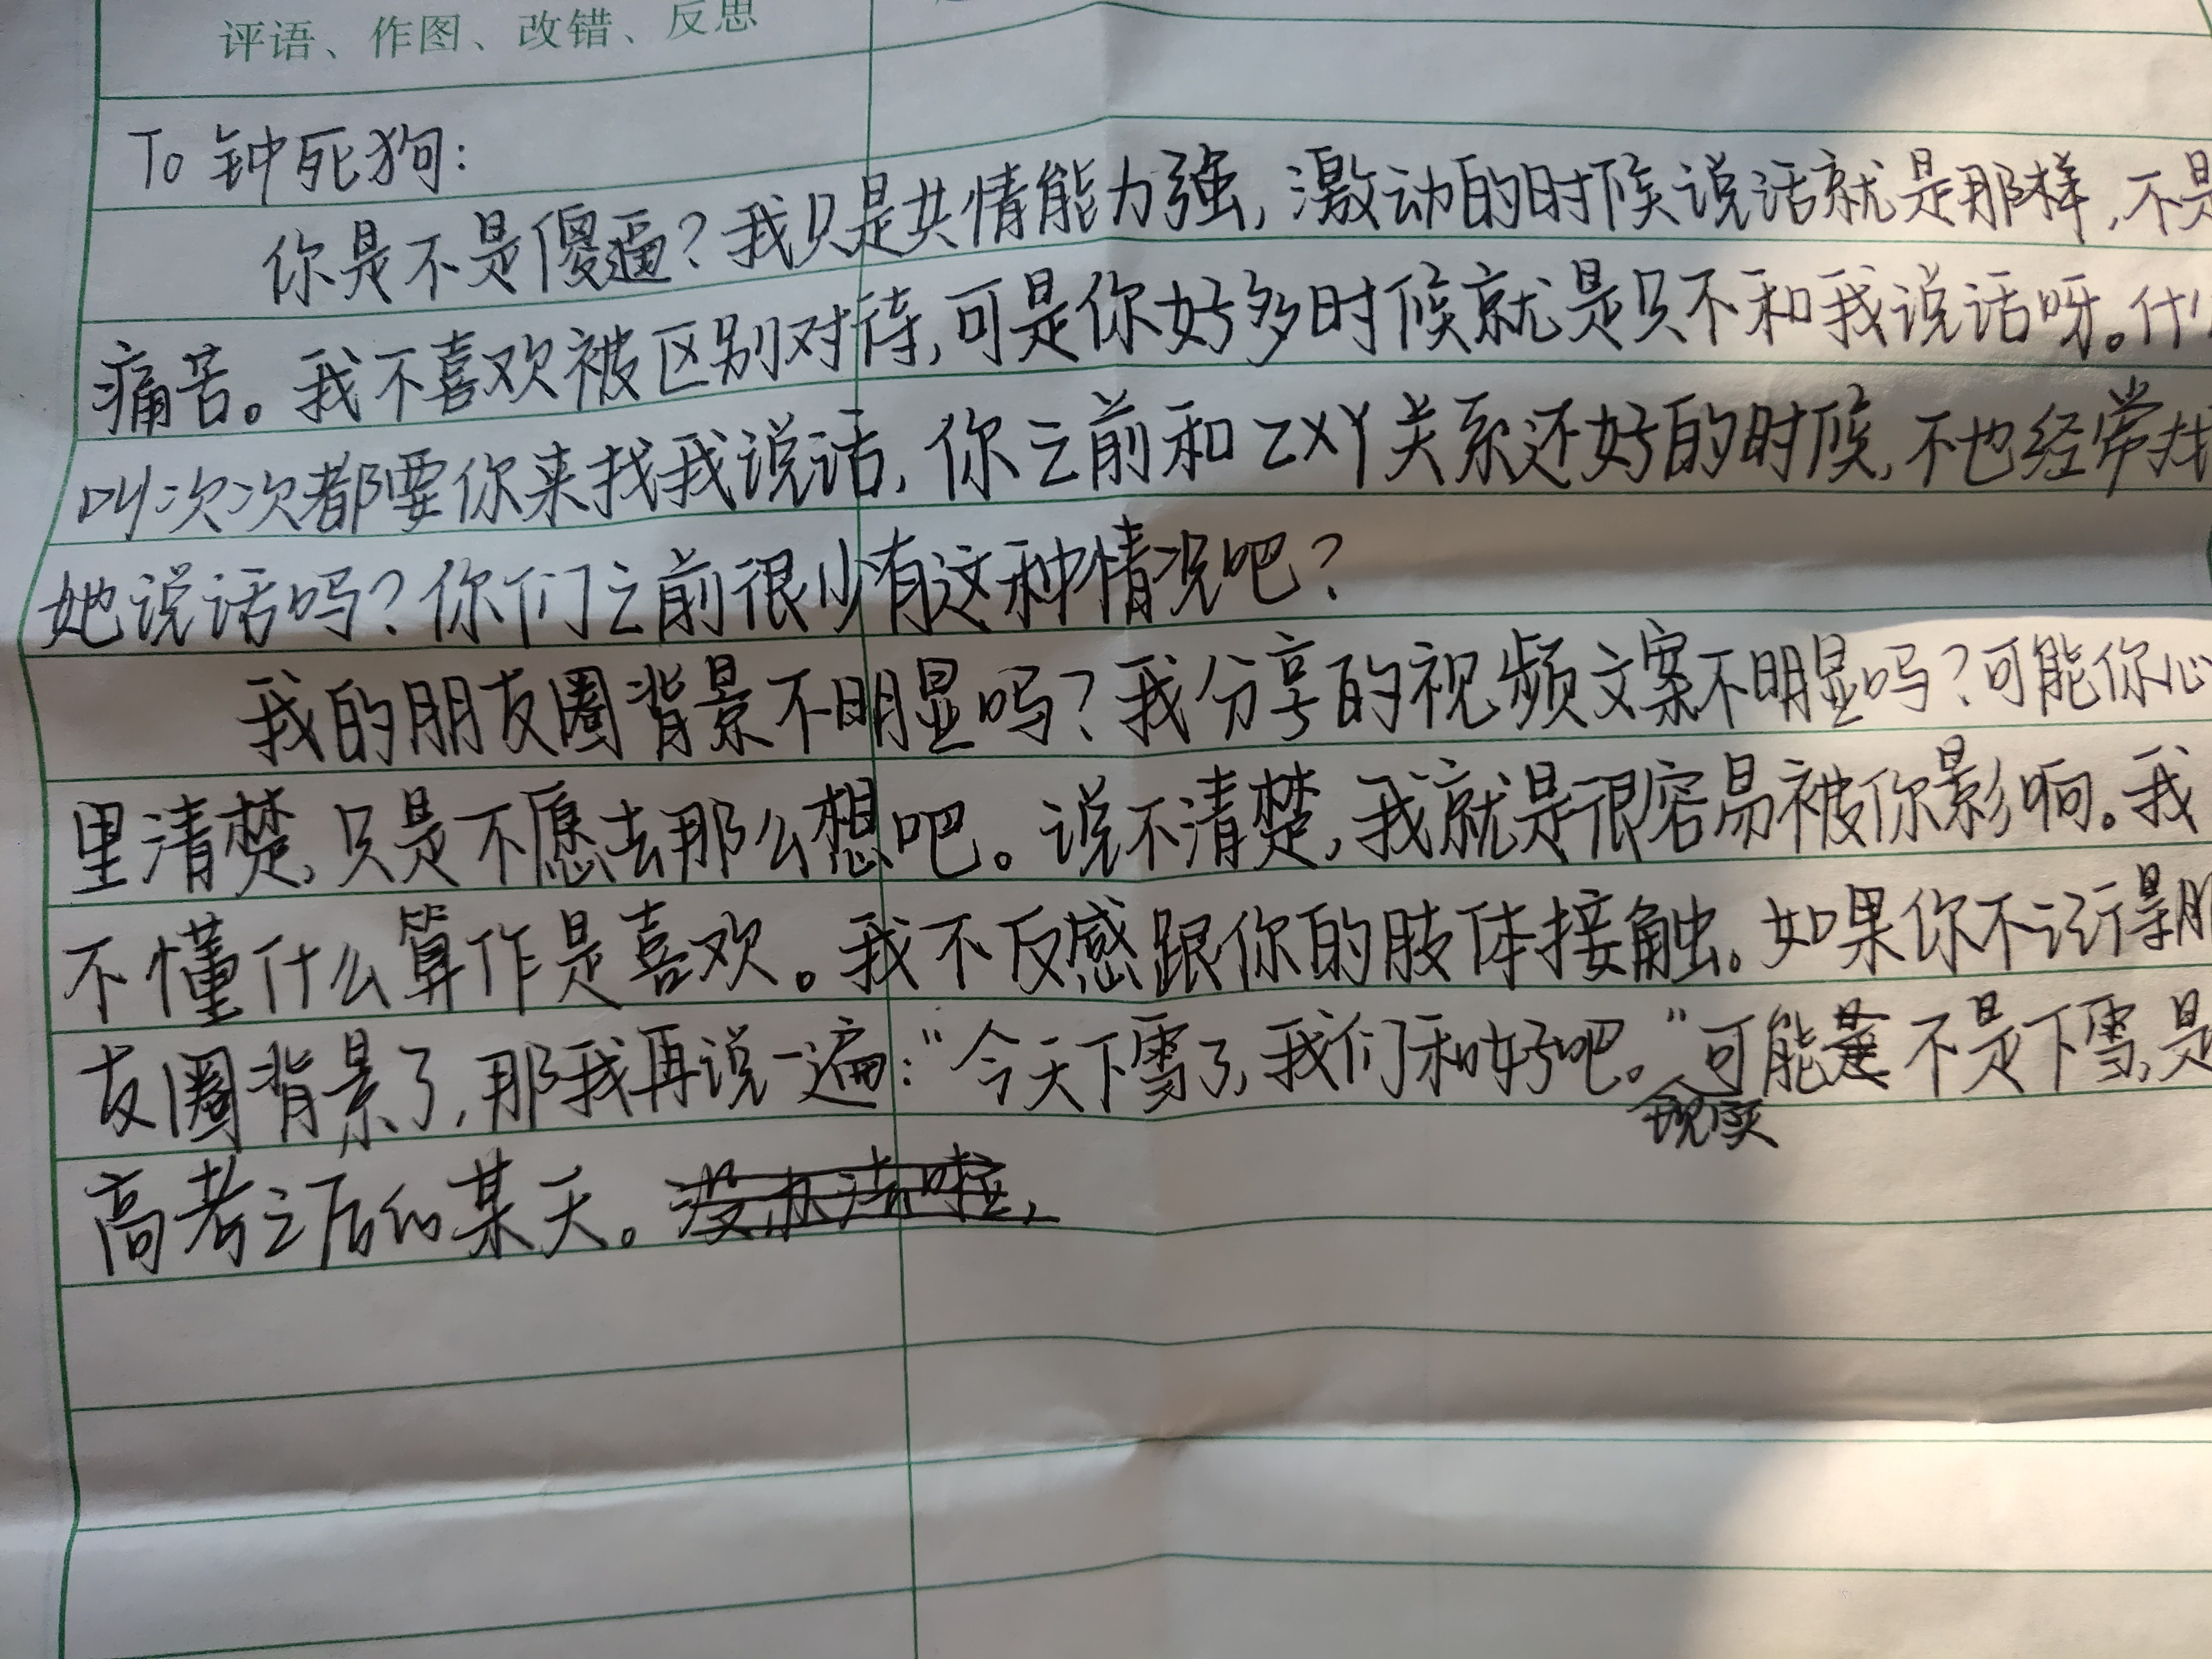 评语、作图、改错、反思
To 钟死狗:
你是不是傻逼?我只是共情能力强,激动的时候说话就是那样,不是
痛苦。我不喜欢被区别对待,可是你好多时候就是只不和我说话呀。什么
叫次次都要你来找我说话,你之前和ZXY关系还好的时候,不也经常找
她说话吗?你们之前很少有这种情况吧?
我的朋友圈背景不明显吗?我分享的视频文案不明显吗?可能你心
里清楚,只是不愿去那么想吧。说不清楚,我就是很容易被你影响。我
不懂什么算作是喜欢。我不反感跟你的肢体接触。如果你不记得朋
友圈背景了,那我再说一遍:“今天下雪了,我们和好吧。”可能 不是下雪,是
现实
高考之后的某天。没办法啦,